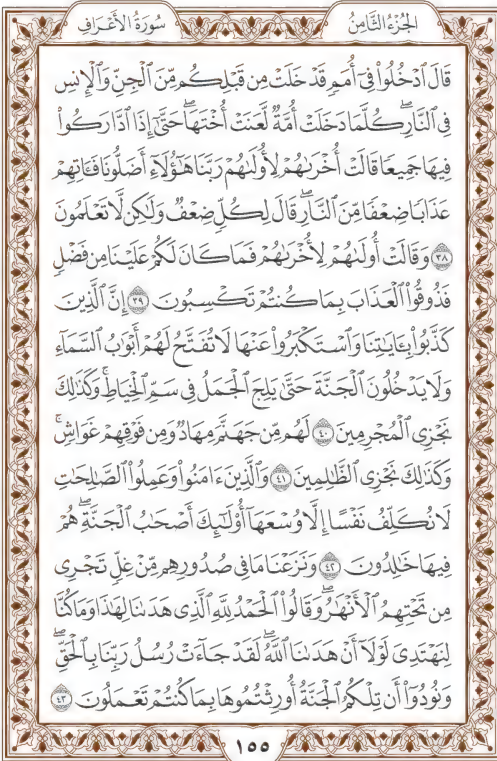 الجُزْءُ الثَّامِنُ
سُورَةُ الأَعْرَافِ
قَالَ ٱدْخُلُوا۟ فِىٓ أُمَمٍ قَدْ خَلَتْ مِن قَبْلِكُم مِّنَ ٱلْجِنِّ وَٱلْإِنسِ
فِى ٱلنَّارِ ۖ كُلَّمَا دَخَلَتْ أُمَّةٌ لَّعَنَتْ أُخْتَهَا ۖ حَتَّىٰٓ إِذَا ٱدَّارَكُوا۟
فِيهَا جَمِيعًا قَالَتْ أُخْرَىٰهُمْ لِأُولَىٰهُمْ رَبَّنَا هَـٰٓؤُلَآءِ أَضَلُّونَا فَـَٔاتِهِمْ
عَذَابًا ضِعْفًا مِّنَ ٱلنَّارِ ۖ قَالَ لِكُلٍّ ضِعْفٌ وَلَـٰكِن لَّا تَعْلَمُونَ
٣٨ وَقَالَتْ أُولَىٰهُمْ لِأُخْرَىٰهُمْ فَمَا كَانَ لَكُمْ عَلَيْنَا مِن فَضْلٍ
فَذُوقُوا۟ ٱلْعَذَابَ بِمَا كُنتُمْ تَكْسِبُونَ ٣٩ إِنَّ ٱلَّذِينَ
كَذَّبُوا۟ بِـَٔايَـٰتِنَا وَٱسْتَكْبَرُوا۟ عَنْهَا لَا تُفَتَّحُ لَهُمْ أَبْوَٰبُ ٱلسَّمَآءِ
وَلَا يَدْخُلُونَ ٱلْجَنَّةَ حَتَّىٰ يَلِجَ ٱلْجَمَلُ فِى سَمِّ ٱلْخِيَاطِ ۚ وَكَذَٰلِكَ
نَجْزِى ٱلْمُجْرِمِينَ ٤٠ لَهُم مِّن جَهَنَّمَ مِهَادٌ وَمِن فَوْقِهِمْ غَوَاشٍ ۚ
وَكَذَٰلِكَ نَجْزِى ٱلظَّـٰلِمِينَ ٤١ وَٱلَّذِينَ ءَامَنُوا۟ وَعَمِلُوا۟ ٱلصَّـٰلِحَـٰتِ
لَا نُكَلِّفُ نَفْسًا إِلَّا وُسْعَهَآ أُو۟لَـٰٓئِكَ أَصْحَـٰبُ ٱلْجَنَّةِ ۖ هُمْ
فِيهَا خَـٰلِدُونَ ٤٢ وَنَزَعْنَا مَا فِى صُدُورِهِم مِّنْ غِلٍّ تَجْرِى
مِن تَحْتِهِمُ ٱلْأَنْهَـٰرُ ۖ وَقَالُوا۟ ٱلْحَمْدُ لِلَّهِ ٱلَّذِى هَدَىٰنَا لِهَـٰذَا وَمَا كُنَّا
لِنَهْتَدِىَ لَوْلَآ أَنْ هَدَىٰنَا ٱللَّهُ ۖ لَقَدْ جَآءَتْ رُسُلُ رَبِّنَا بِٱلْحَقِّ ۖ
وَنُودُوٓا۟ أَن تِلْكُمُ ٱلْجَنَّةُ أُورِثْتُمُوهَا بِمَا كُنتُمْ تَعْمَلُونَ ٤٣
١٥٥